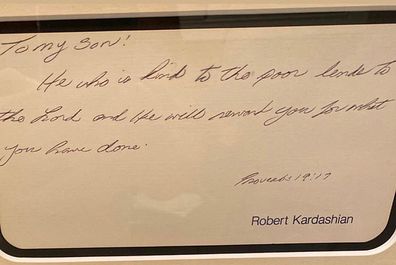 To my son!
He who is kind to the poor lends to
the Lord and He will reward you for what
you have done.
Proverbs 19:17
Robert Kardashian